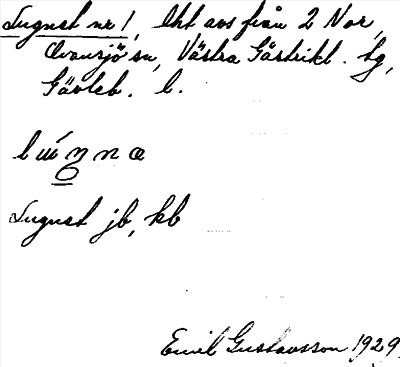 Lugnet nr 1, lht avs från 2 Nor,
Ovansjö sn, Västra Gästrikl. tg,
Gävleb. l.
Lugnet jb, kb
Emil Gustavsson 1929.